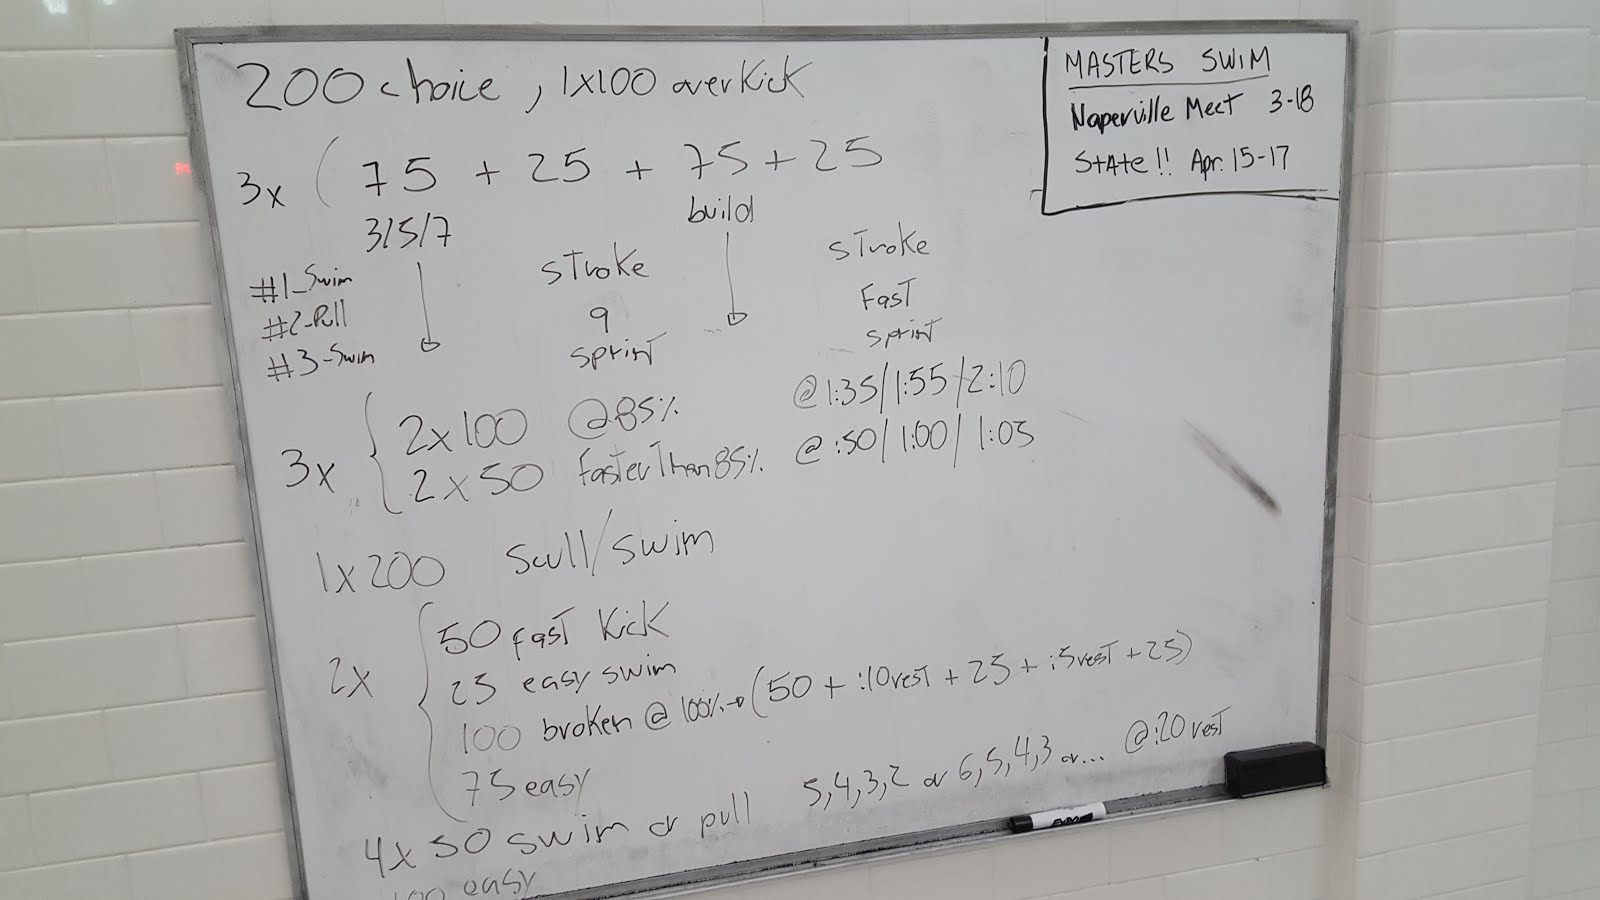 200 choice, 1x100 over kick
3x ( 75 + 25 + 75 + 25
3/5/7
build
#1_Swim
#2-Pull
#3-Swim
stroke
9
sprint
stroke
Fast
sprint
3x { 2x100 @85% @1:35/1:55/2:10
2x50 faster Than 85% @:50/1:00/1:05
1x200 Scull/swim
2x { 50 fast Kick
25 easy swim
100 broken @ 100% → (50 + :10 rest + 25 + :5 rest + 25)
75 easy
4x50 swim or pull 5,4,3,2 or 6,5,4,3 or... @:20 rest
100 easy
MASTERS SWIM
Naperville Meet 3-18
StAte!! Apr. 15-17
EXPO